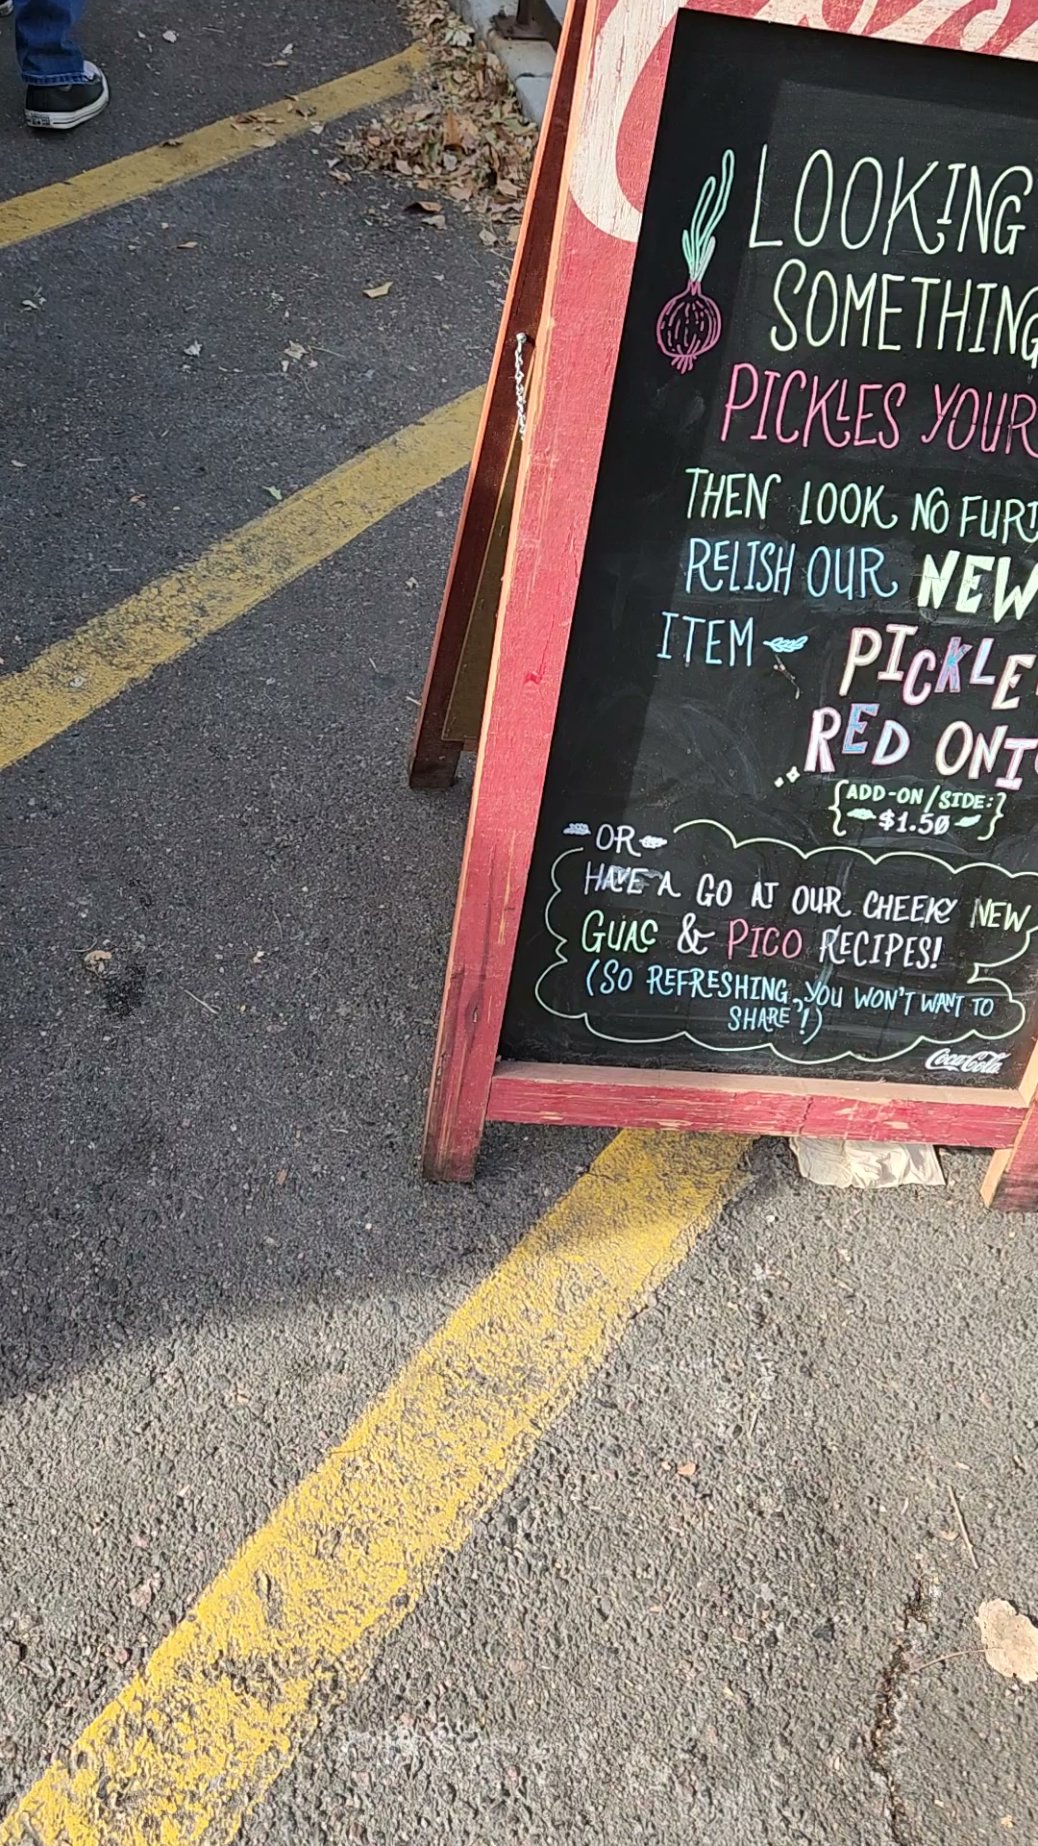 LOOKING
SOMETHING
PICKLES YOUR
THEN LOOK NO FURT
RELISH OUR NEW
ITEM PICKLE
RED ONI
{ADD-ON/SIDE:
$1.50}
OR
HAVE A GO AT OUR CHEEKY NEW
GUAC & PICO RECIPES!
(SO REFRESHING, YOU WON'T WANT TO
SHARE!)
Coca-Cola